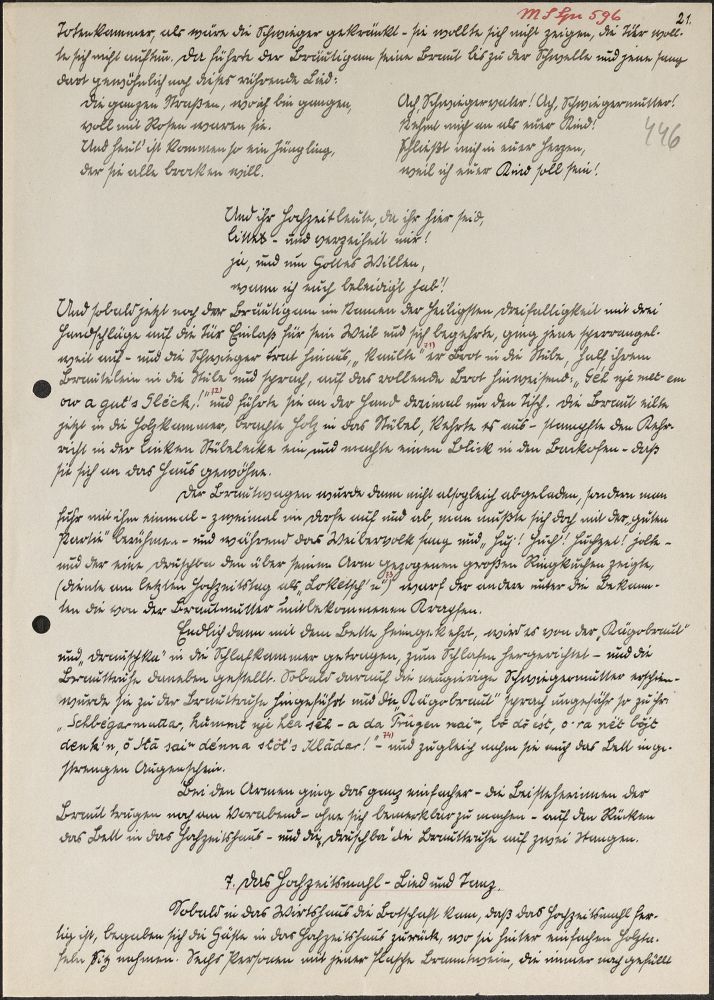 MS Gr 596
21.
446
Totenkammer, als wäre die Schwieger gekränkt - sie wollte sich nicht zeigen, die Tür woll-
te sich nicht auftun. Da führte der Bräutigam seine Braut bis zu der Schwelle und jene sang
dort gewöhnlich noch dieses rührende Lied:
Die ganzen Straßen, wo ich bin gangen,
voll mit Rosen waren sie.
Und heut' ist kommen so ein Jüngling,
der sie alle brocken will.
Ach, Schwiegervater! Ach, Schwiegermutter!
Nehmt mich an als euer Kind!
Schließt mich in euer Herzen,
weil ich euer Kind soll sein!
Und ihr Hochzeitleute, die ihr hier seid,
bittet - und verzeihet mir!
ja, und um Gottes Willen,
wann ich euch beleidigt hab'!
Und sobald jetzt noch der Bräutigam im Namen der Heiligsten Dreifaltigkeit mit drei
Handschläge auf die Tür Einlaß für sein Weib und sich begehrte, ging jene sperrangel-
weit auf - und die Schwieger trat hinaus, "kailte" 71) er Brot in die Stube, half ihrem
Bräutelein in die Stube und sprach, auf das rollende Brot hinweisend: "Geh nje met em
ow a gut's Gleck!" 72) und führte sie an der Hand dreimal um den Tisch. Die Braut eilte
jetzt in die Holzkammer, brachte Holz in das Stübel, kehrte es aus - stampfte den Kehr-
richt in der linken Stübelecke ein und machte einen Blick in den Backofen - daß
sie sich an das Haus gewöhne.
Der Brautwagen wurde dann nicht alsogleich abgeladen, sondern man
fuhr mit ihm einmal - zweimal im Dorfe auf und ab, man mußte sich doch mit der "guten
Partie" berühmen - und während das Weibervolk sang und "Juj! Juch! Hochzet! johlte -
und der eine Druschba den über seinen Arm gezogenen großen Ringkuchen zeigte,
(diente am letzten Hochzeitstag als "Lokletsch'n" 73)) warf der andere unter die Bekann-
ten die von der Brautmutter mitbekommenen Krapfen.
Endlich dann mit dem Bette heimgekehrt, wird es von der "Rägobraut"
und "Drauschka" in die Schlafkammer getragen, zum Schlafen hergerichtet - und die
Brauttruhe daneben gestellt. Sobald darauf die neugierige Schwiegermutter erschien -
wurde sie zu der Brauttruhe hingeführt und die "Rägobraut" sprach ungefähr so zu ihr:
"Schbégarmuttar, kummt nje hea sél - a da Trügen nai", bo do ést, o ra nét bögt
denk'n, ö Ha sai' dénna slöt's Kläder!" 74) - und zugleich nahm sie auch das Bett in ge-
strengen Augenschein.
Bei den Armen ging das ganz einfacher - die Beisteherinnen der
Braut trugen noch am Vorabend - ohne sich bemerkbar zu machen - auf den Rücken
das Bett in das Hochzeitshaus - und die "Druschba" die Brauttruhe auf zwei Stangen.
7. Das Hochzeitsmahl - Lied und Tanz.
Sobald in das Wirtshaus die Botschaft kam, daß das Hochzeitsmahl fer-
tig ist, begaben sich die Gäste in das Hochzeitshaus zurück, wo sie hinter einfachen Holzta-
feln Sitz nahmen. Sechs Personen mit jener Flasche Branntwein, die immer nachgefüllt